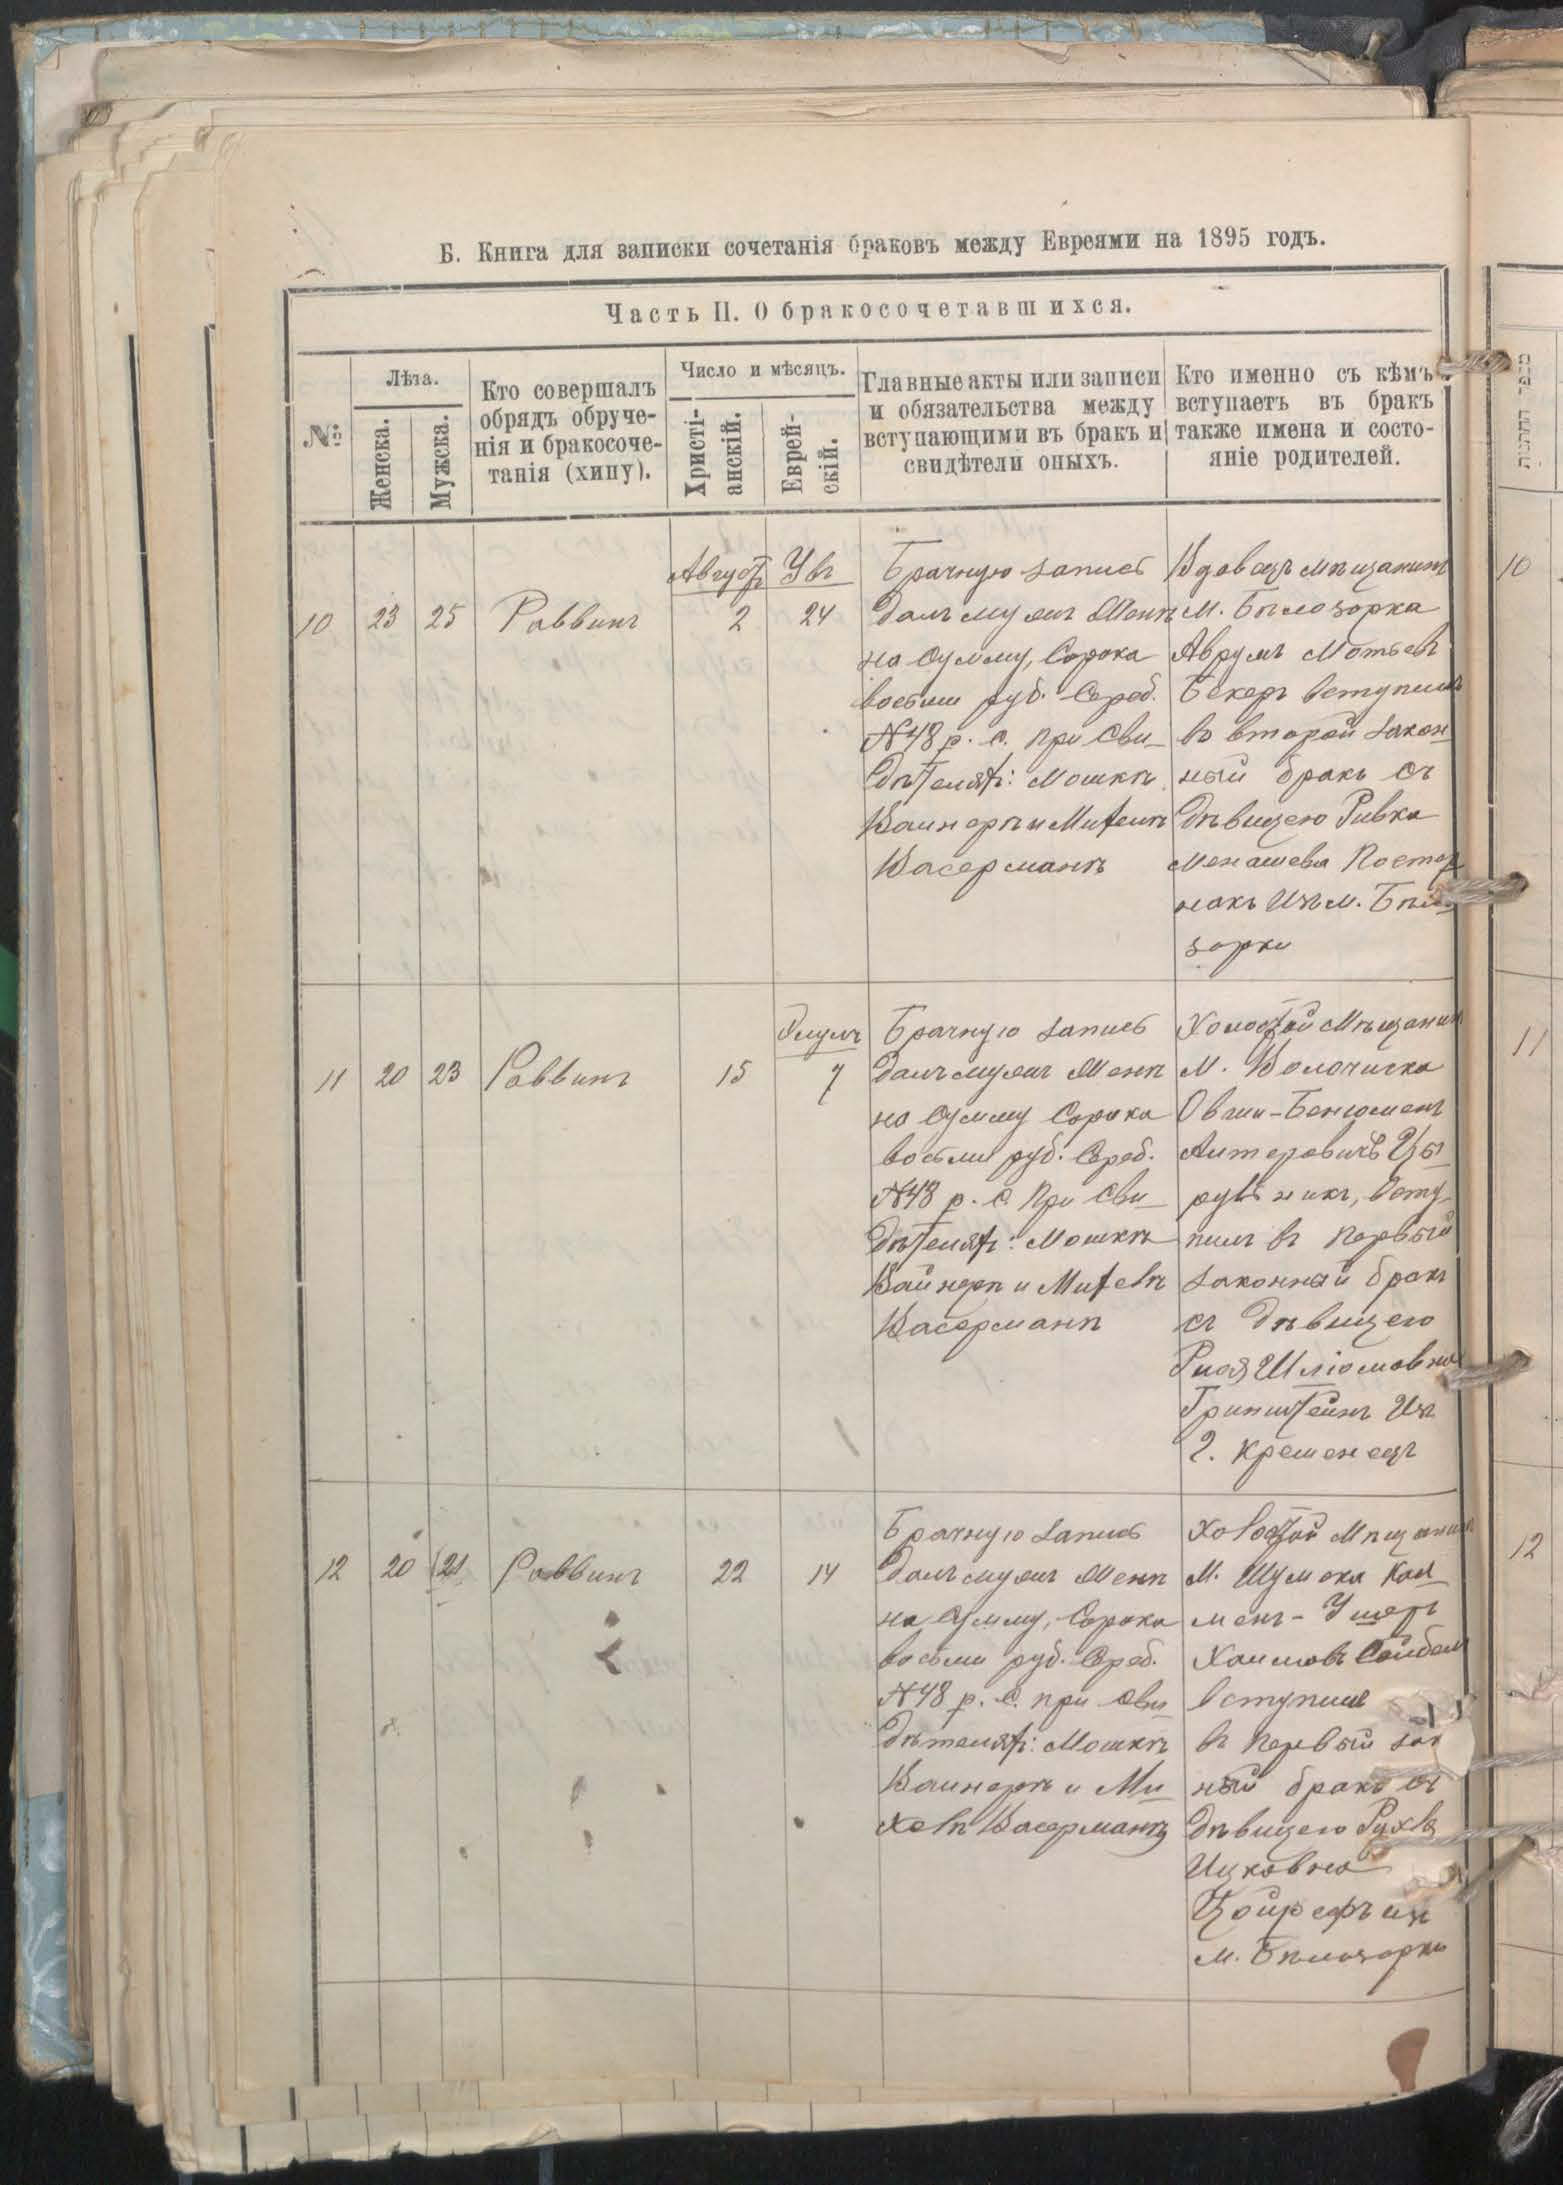 Б. Книга для записки сочетанія браковъ между Евреями на 1895 годъ.
Часть II. О бракосочетавшихся.
№
Лѣта.
Женска.
Мужска.
Кто совершалъ
обрядъ обруче-
нія и бракосоче-
танія (хипу).
Число и мѣсяцъ.
Христі-
анскій.
Еврей-
скій.
Главные акты или записи
и обязательства между
вступающими въ бракъ и
свидѣтели оныхъ.
Кто именно съ кѣмъ
вступаетъ въ бракъ
также имена и состо-
яніе родителей.
10
23
25
Раввинъ
Август
2
24
Брачную запись
далъ мужъ женѣ
на сумму, сорока
восьми руб. сереб.
№48 р. с. при сви-
дѣтеляхъ: Мошкѣ
Вайнерѣ и Михелѣ
Васерманѣ
Вдовецъ мѣщанинъ
м. Бѣлозорка
Аврумъ Мотьевъ
Бекеръ вступилъ
въ второй закон-
ный бракъ съ
дѣвицею Ривка
Менашева Постер
накъ изъ м. Бѣло
зорки
11
20
23
Раввинъ
15
Элулъ
7
Брачную запись
далъ мужъ женѣ
на сумму сорока
восьми руб. сереб.
№48 р. с. при сви-
дѣтеляхъ: Мошкѣ
Вайнерѣ и Михелѣ
Васерманѣ
Холостой мѣщанинъ
м. Волочиска
Овши-Бенюменъ
Алтеровичъ Цы-
рульникъ, всту-
пилъ въ первый
законный бракъ
съ дѣвицею
Шліомовна
Гринштейнъ изъ
г. Кременецъ
12
20
21
Раввинъ
22
14
Брачную запись
далъ мужъ женѣ
на сумму, сорока
восьми руб. сереб.
№48 р. с. при сви-
дѣтеляхъ: Мошкѣ
Вайнерѣ и Ми-
хелѣ Васерманѣ
Холостой мѣщанинъ
м. Шумска Кал-
менъ-Ушеръ
Хаимовъ
вступилъ
въ первый зак
ный бракъ съ
дѣвицею Рухля
Ицковна
изъ
м. Бѣлозорки
10
11
12